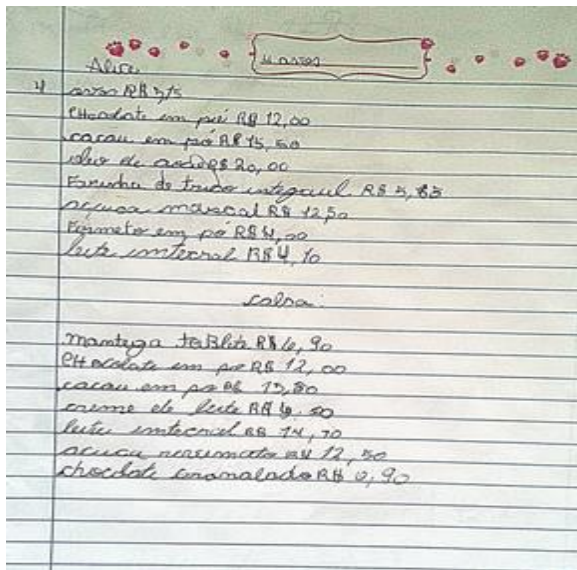 4 ovos
Alice
4 ovos R$ 5,75
CHocolate em poí R$ 12,00
cacau em poí R$ 15,50
oleo de R$ 20,00
Farinha de trigo integraul R$ 5,85
mascal R$ 12,50
Firmeto em pó R$ 4,00
leite integral R$ 4,10
calda:
manteiga tablete R$ 6,90
CHocolate em po R$ 12,00
cacau em po R$ 15,80
creme de leite R$ 6,50
leite integral R$ 14,10
R$ 12,50
chocolate R$ 6,90